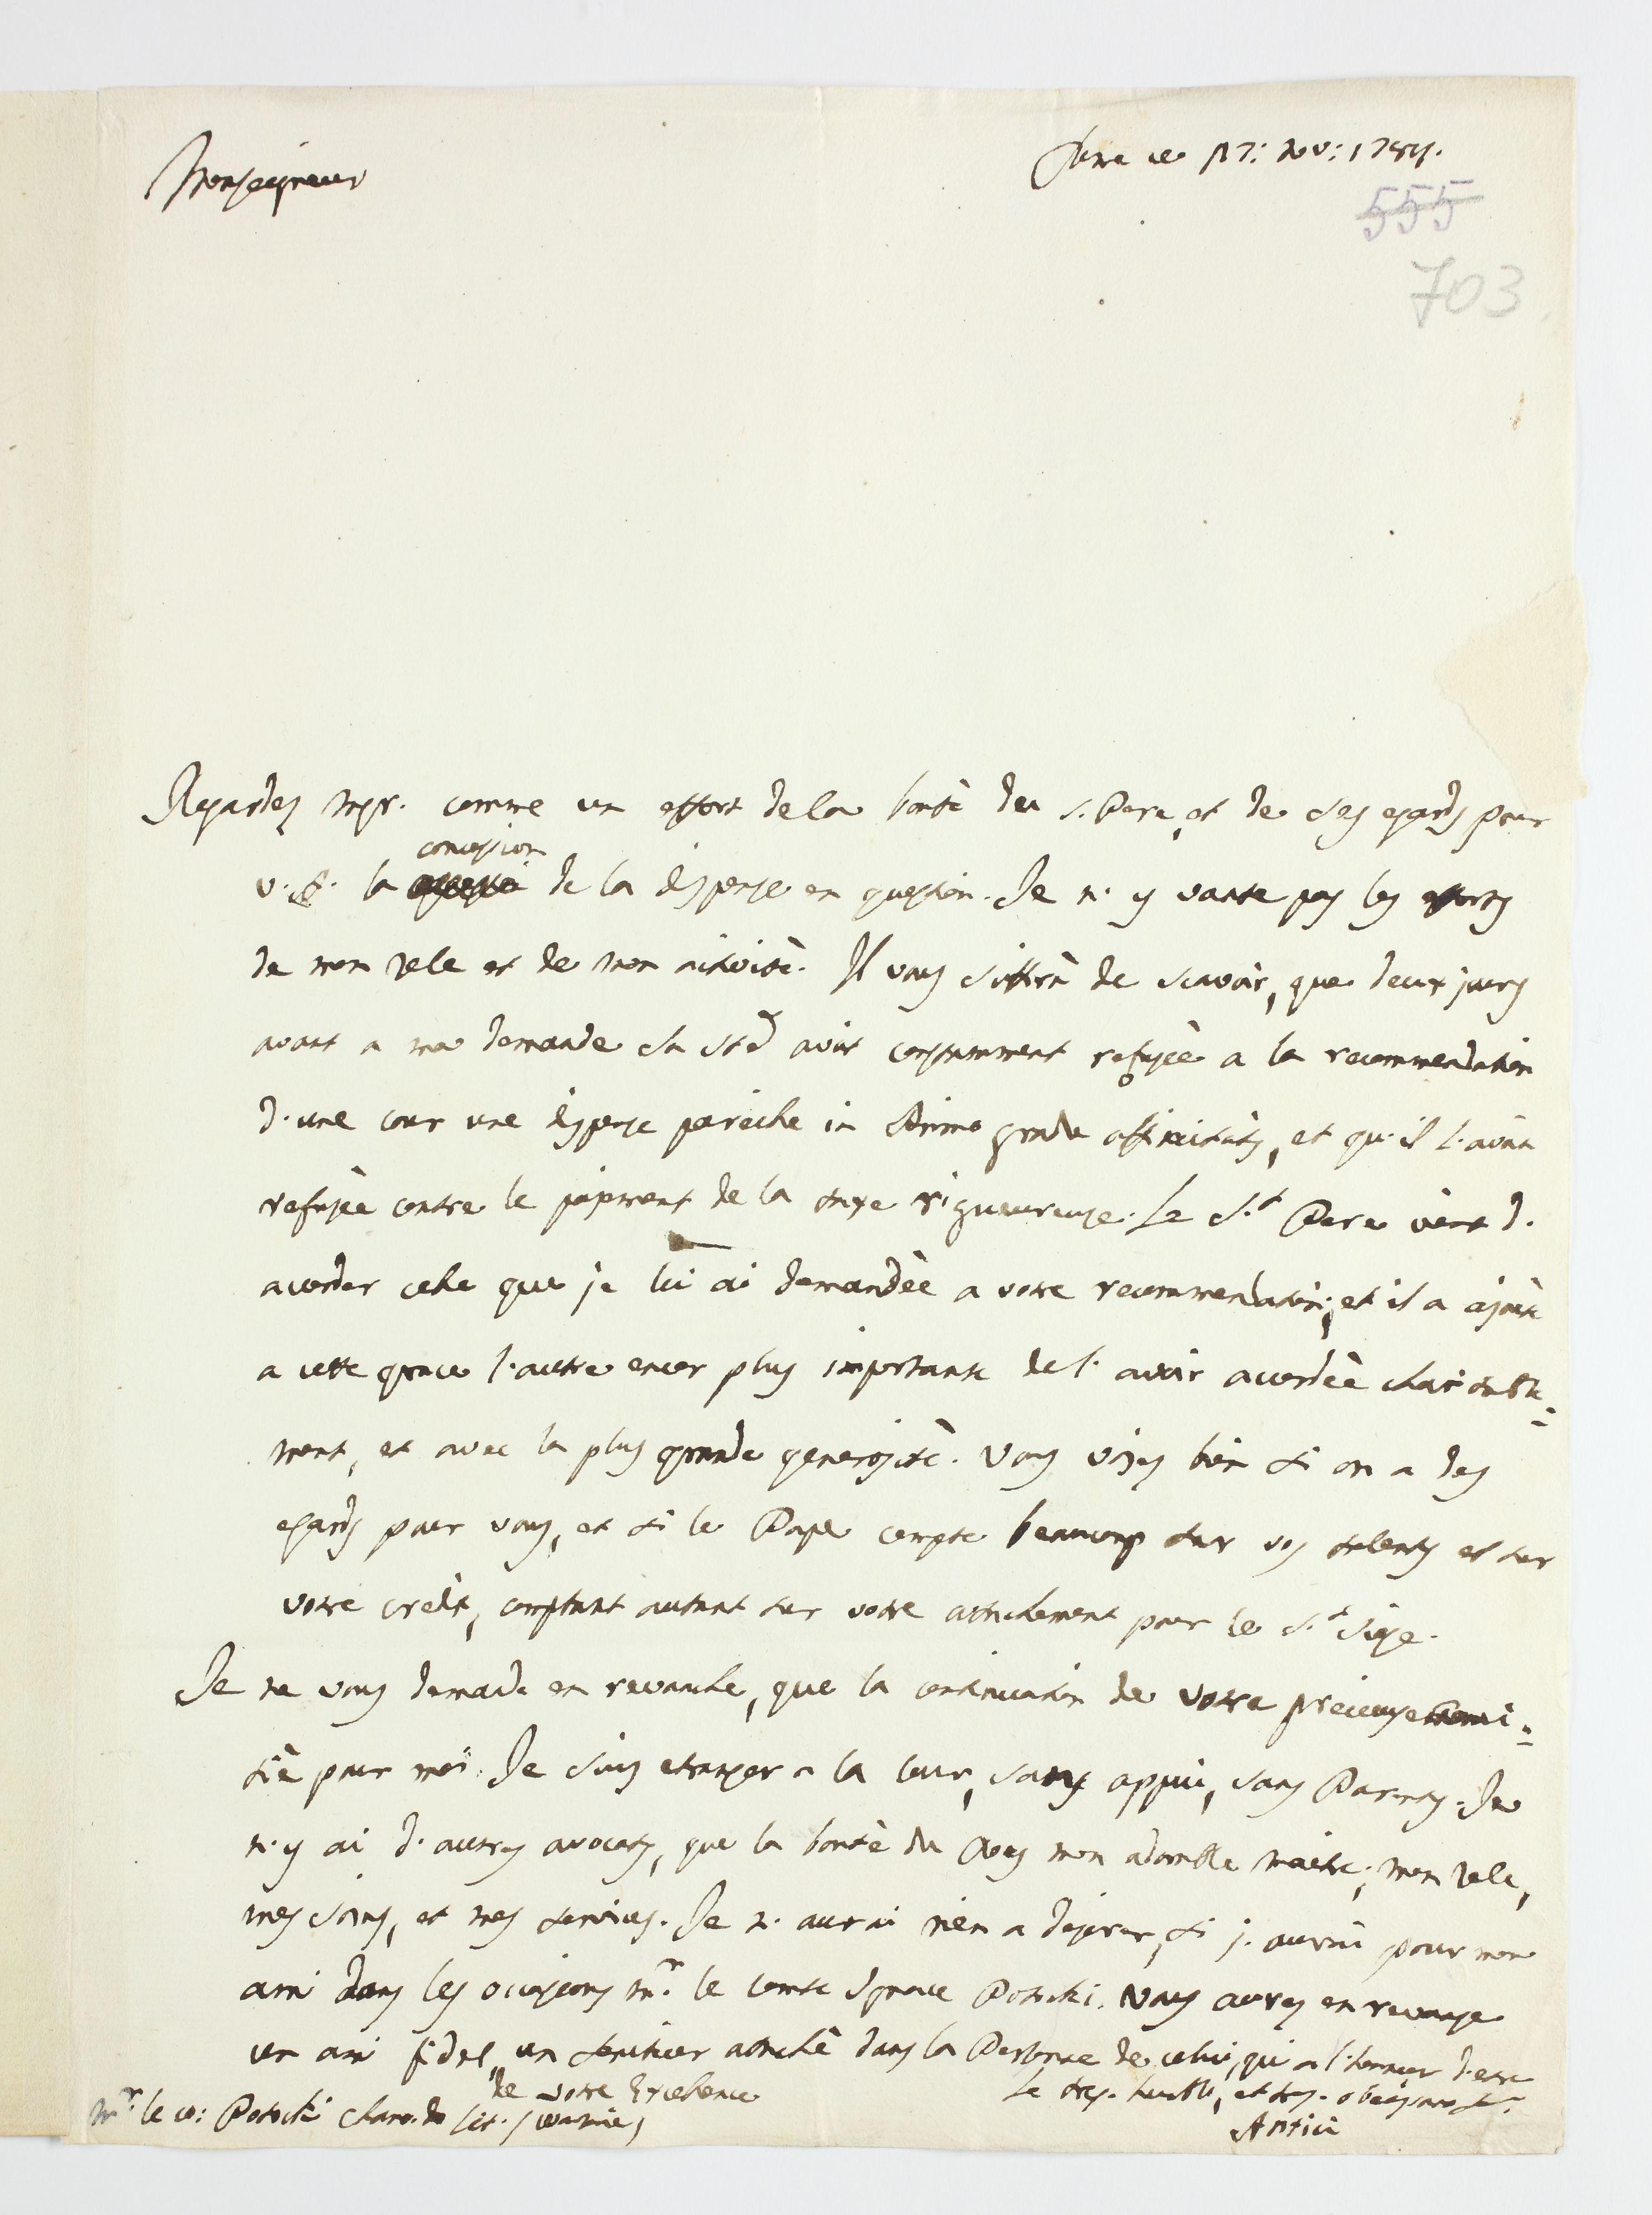 Monseigneur
Rome ce 17: nov: 1784.
555
703
Regardez Mgr. comme un effort de la bonté du S. Pere, et de ses egards pour
concession
V. E. la de la dispense en question. Je n'y vante pas les efforts
de mon zele et de mon activité. Il vous suffira de scavoir, que deux jours
avant a ma demande Sa Std avoit constamment refusée a la recommendation
d'une cour une dispense pareille in Primo gradu affinitatis, et qu'il l'avoit
refusée contre le paiement de la taxe rigueureuse. Le S.t Pere vient d'
accorder celle que je lui ai demandée a votre recommendation; et il a ajouté
a cette grace l'autre encor plus importante de l'avoir accordée charitable=
ment, et avec la plus grande generosité. Vous voyez bien si on a des
egards pour vous, et si le Pape compte beaucoup sur vos talents et sur
votre credit, comptant autant sur votre attachement pour le S.t Siege.
Je ne vous demande en revanche, que la continuation de votre precieuse ami=
tié pour moi. Je suis etranger a la Cour, sans appui, sans Parents. Je
n'y ai d'autres avocats, que la bonté du Roy mon adorable maitre, mon zele,
mes soins, et mes services. Je n'aurai rien a desirer, si j'aurai pour mon
ami dans les occasions Mr. le comte Ignace Potocki. Vous aurez en revange
un ami fidel, un serviteur attaché dans la Personne de celui, qui a l'honneur d'etre
de votre Excellence
Le tres. humble, et tres. obeissant Sr.
Mr. le co: Potocki Antici